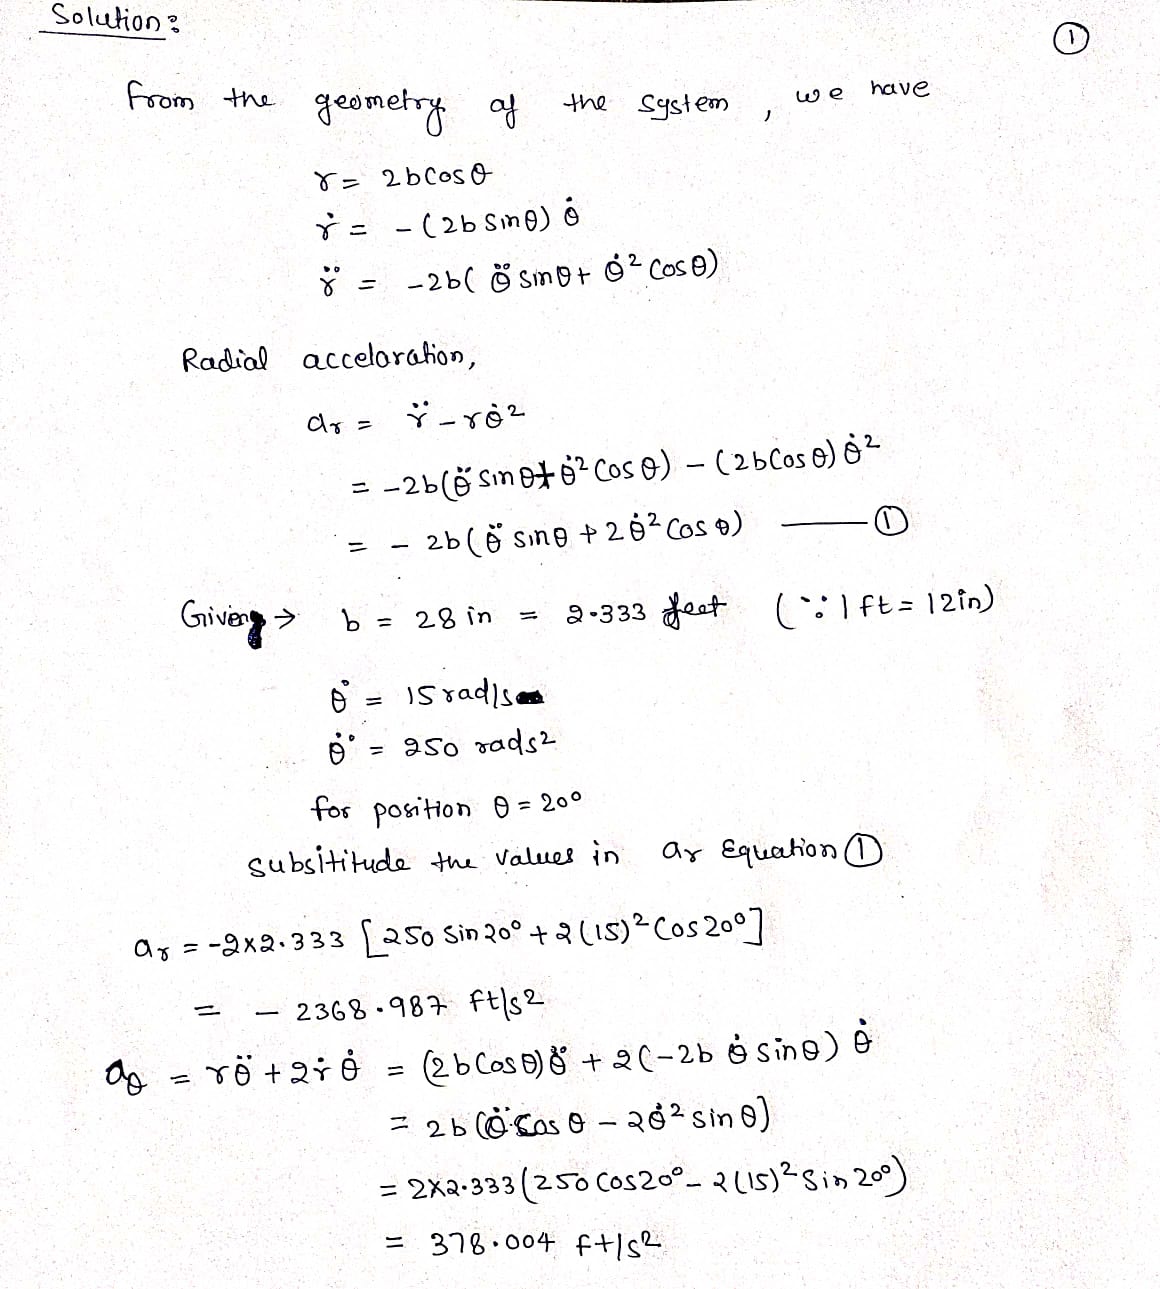 Solution:
①
From the geometry of the system, we have
r = 2bcosθ
ṙ = -(2b sinθ) θ̇
r̈ = -2b( θ̈ sinθ + θ̇² cosθ)
Radial accelaration,
ar = r̈ - rθ̇²
= -2b(θ̈ sinθ + θ̇² cosθ) - (2bcosθ) θ̇²
= - 2b(θ̈ sinθ + 2θ̇² cosθ) —— ①
Given → b = 28 in = 2.333 feet (∵ 1 ft = 12in)
θ̇ = 15 rad/s
θ̈ = 250 rads2
for position θ = 20°
subsititude the values in ar Equation ①
ar = -2×2.333 [250 sin20° + 2(15)² cos20°]
= - 2368.987 ft/s2
aθ = rθ̈ + 2ṙθ̇ = (2bcosθ)θ̈ + 2(-2b θ̇ sinθ) θ̇
= 2b(θ̈ cosθ - 2θ̇² sinθ]
= 2×2.333(250 cos20° - 2(15)² sin20°)
= 378.004 ft/s2